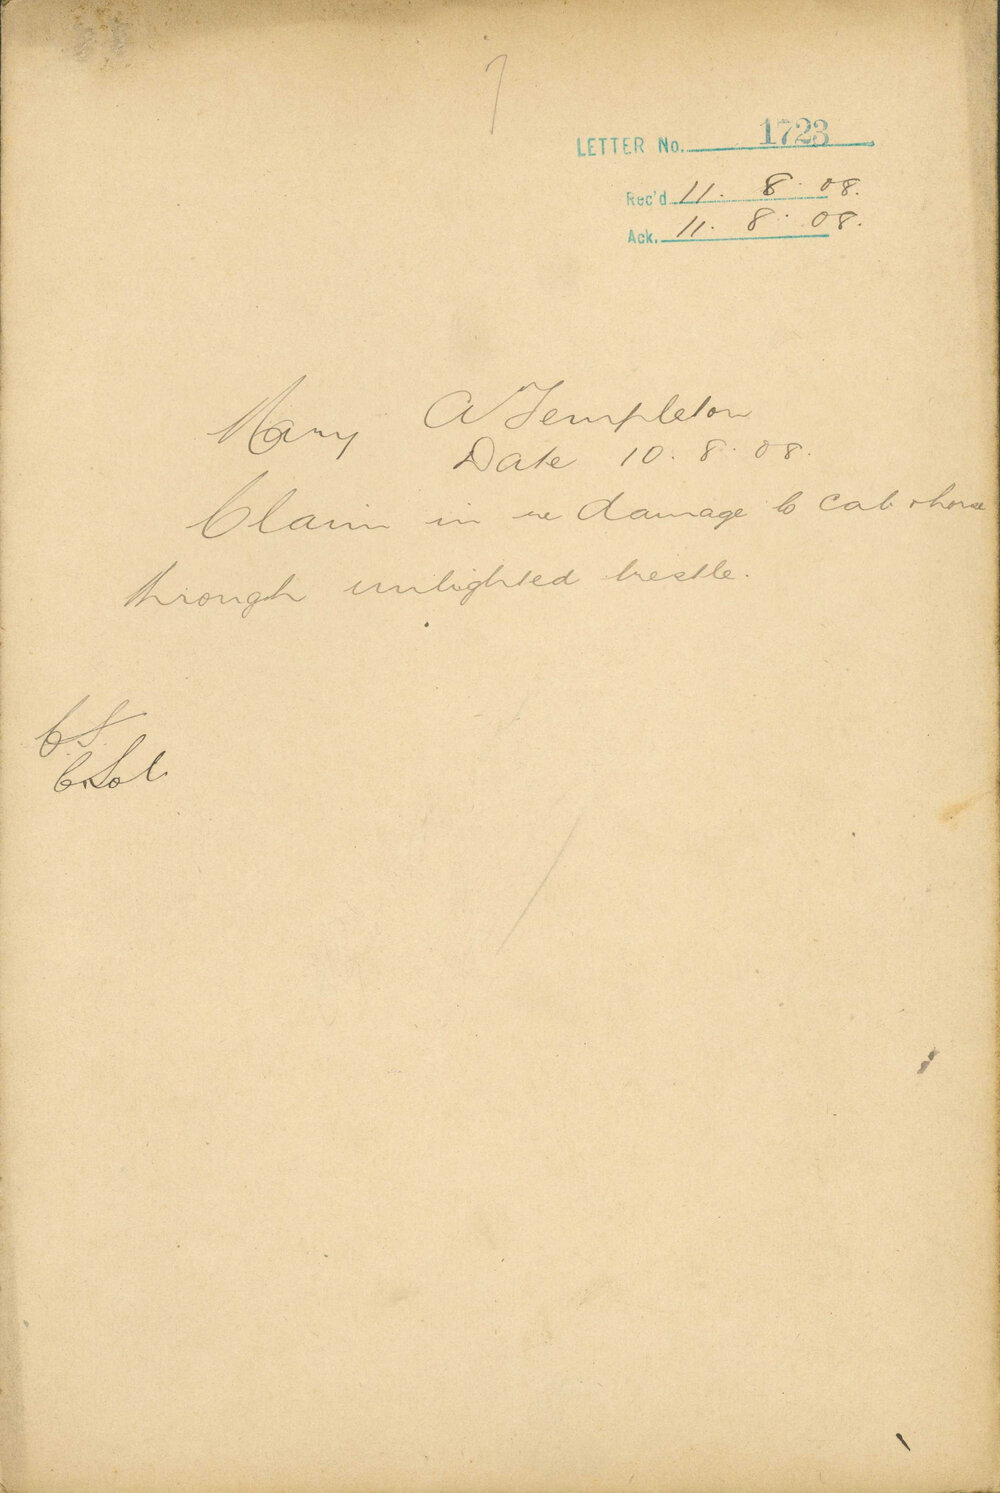 LETTER No. 1723
Rec'd 11. 8. 08.
Ack. 11. 8. 08.
Mary A Templeton
Date 10. 8. 08.
Claim in re damage to cab & horse
through unlighted trestle.
C.S.
C. Sol